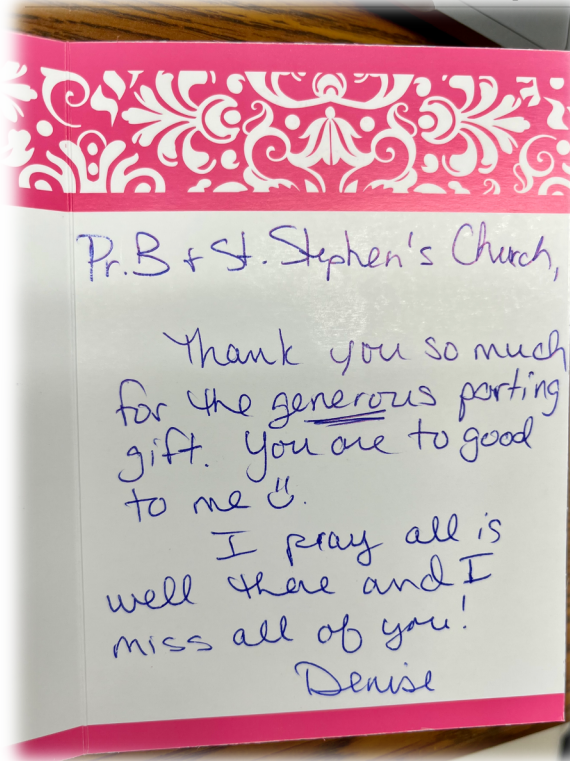 Pr. B + St. Stephen's Church,
Thank you so much
for the generous parting
gift. You are to good
to me ü.
I pray all is
well there and I
miss all of you!
Denise